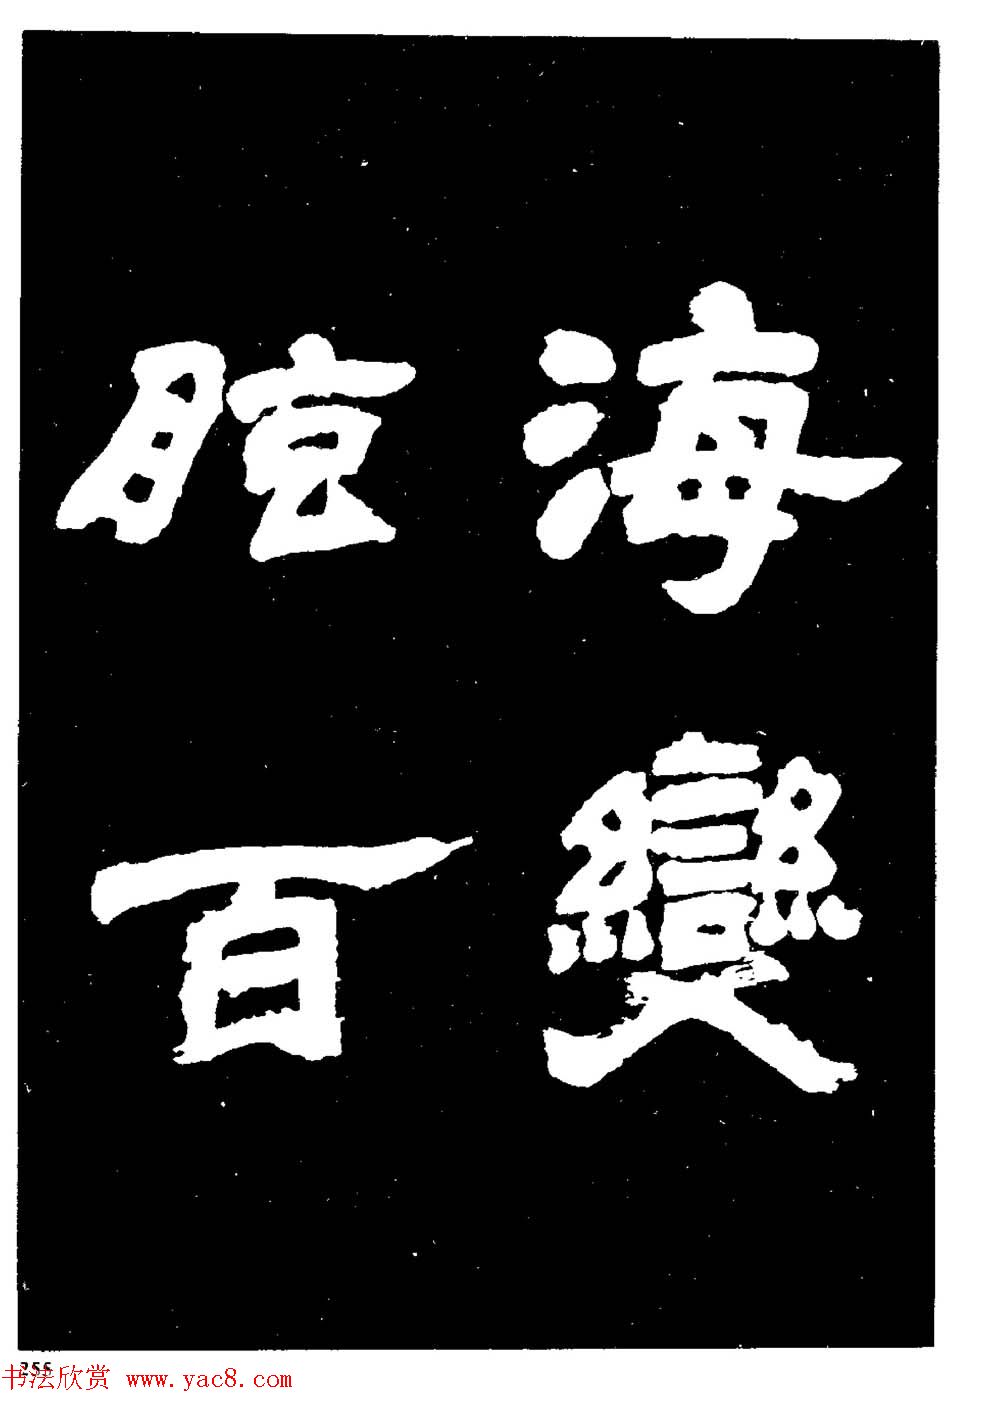 海變
眩百
255
书法欣赏 www.yac8.com